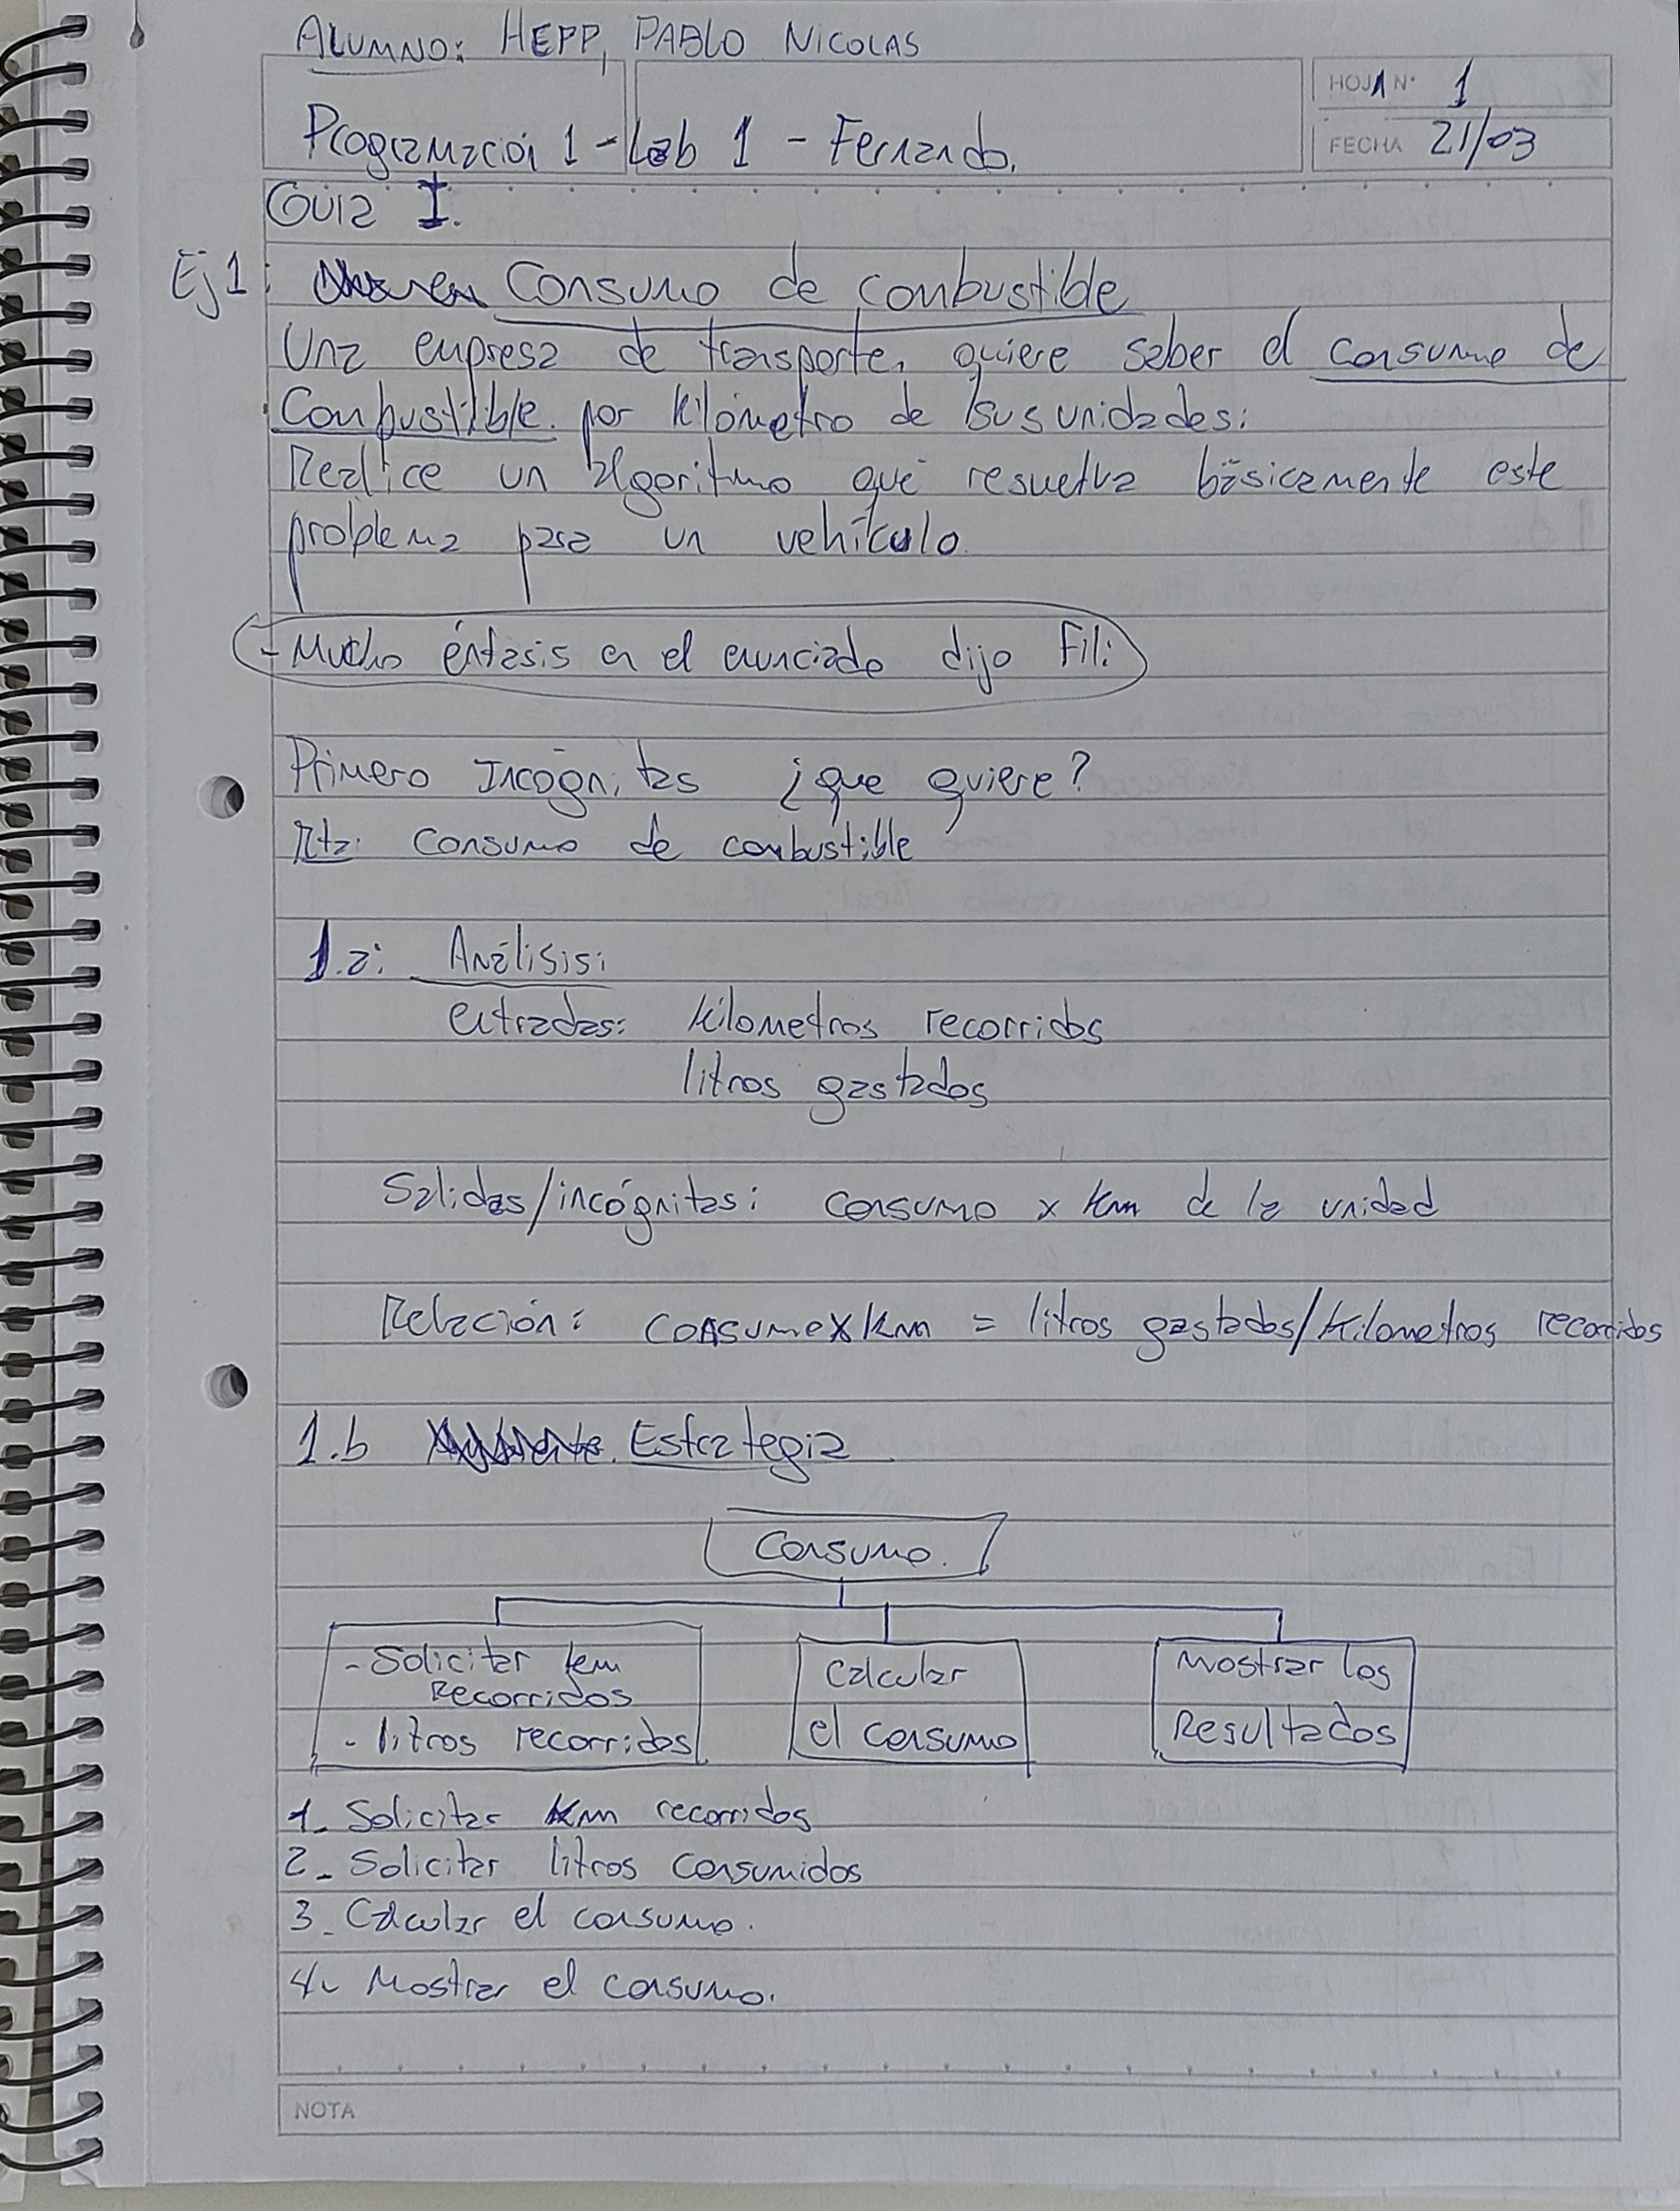 ALUMNO: HEPP, PABLO NICOLAS
HOJA N° 1
Programación 1 - Lab 1 - Fernando.
FECHA 21/03
Guia I.
Ej 1: Consumo de combustible
Una empresa de transporte, quiere saber el consumo de
Combustible por kilómetro de sus unidades:
Realice un algoritmo que resuelva básicamente este
problema para un vehículo.
- Mucho énfasis en el enunciado dijo Fili
Primero Incógnitas ¿que quiere?
Rta: Consumo de combustible
1.a: Análisis:
entradas: kilometros recorridos
litros gastados
Salidas/incógnitas: consumo x km de la unidad
Relación: consumo x km = litros gastados/kilometros recorridos
1.b Estrategia
Consumo.
- Solicitar km
recorridos
- litros recorridos
Calcular
el consumo
Mostrar los
Resultados
1- Solicitar km recorridos
2- Solicitar litros consumidos
3- Calcular el consumo.
4- Mostrar el consumo.
NOTA